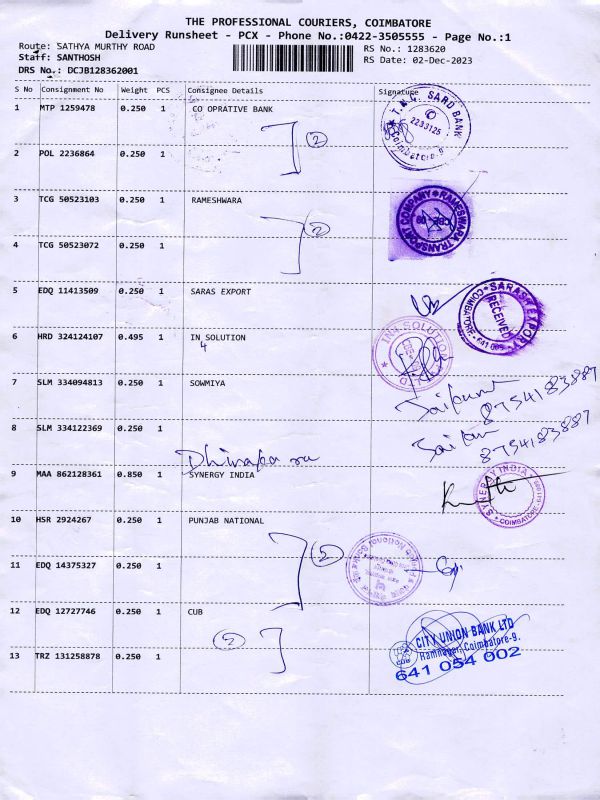 THE PROFESSIONAL COURIERS, COIMBATORE
Delivery Runsheet - PCX - Phone No.:0422-3505555 - Page No.:1
Route: SATHYA MURTHY ROAD
RS No.: 1283620
Staff: SANTHOSH
RS Date: 02-Dec-2023
DRS No.: DCJB128362001
S No Consignment No Weight PCS Consignee Details Signature
1 MTP 1259478 0.250 1 CO OPRATIVE BANK
SARD BANK
2233125
Coimbatore-9
2
2 POL 2236864 0.250 1
3 TCG 50523103 0.250 1 RAMESHWARA
RAMESHWARA TRANSPORT COMPANY
CBE-09
2
4 TCG 50523072 0.250 1
5 EDQ 11413509 0.250 1 SARAS EXPORT
SARAS EXPORT
RECEIVED
COIMBATORE - 641 009
6 HRD 324124107 0.495 1 IN SOLUTION
4
IN SOLUTION
7 SLM 334094813 0.250 1 SOWMIYA
8754183887
8 SLM 334122369 0.250 1
8754183887
9 MAA 862128361 0.850 1 SYNERGY INDIA
SYNERGY INDIA
COIMBATORE
10 HSR 2924267 0.250 1 PUNJAB NATIONAL
2
11 EDQ 14375327 0.250 1
12 EDQ 12727746 0.250 1 CUB
2
CUB
CITY UNION BANK LTD
Ramnagar, Coimbatore-9.
641 054 002
13 TRZ 131258878 0.250 1